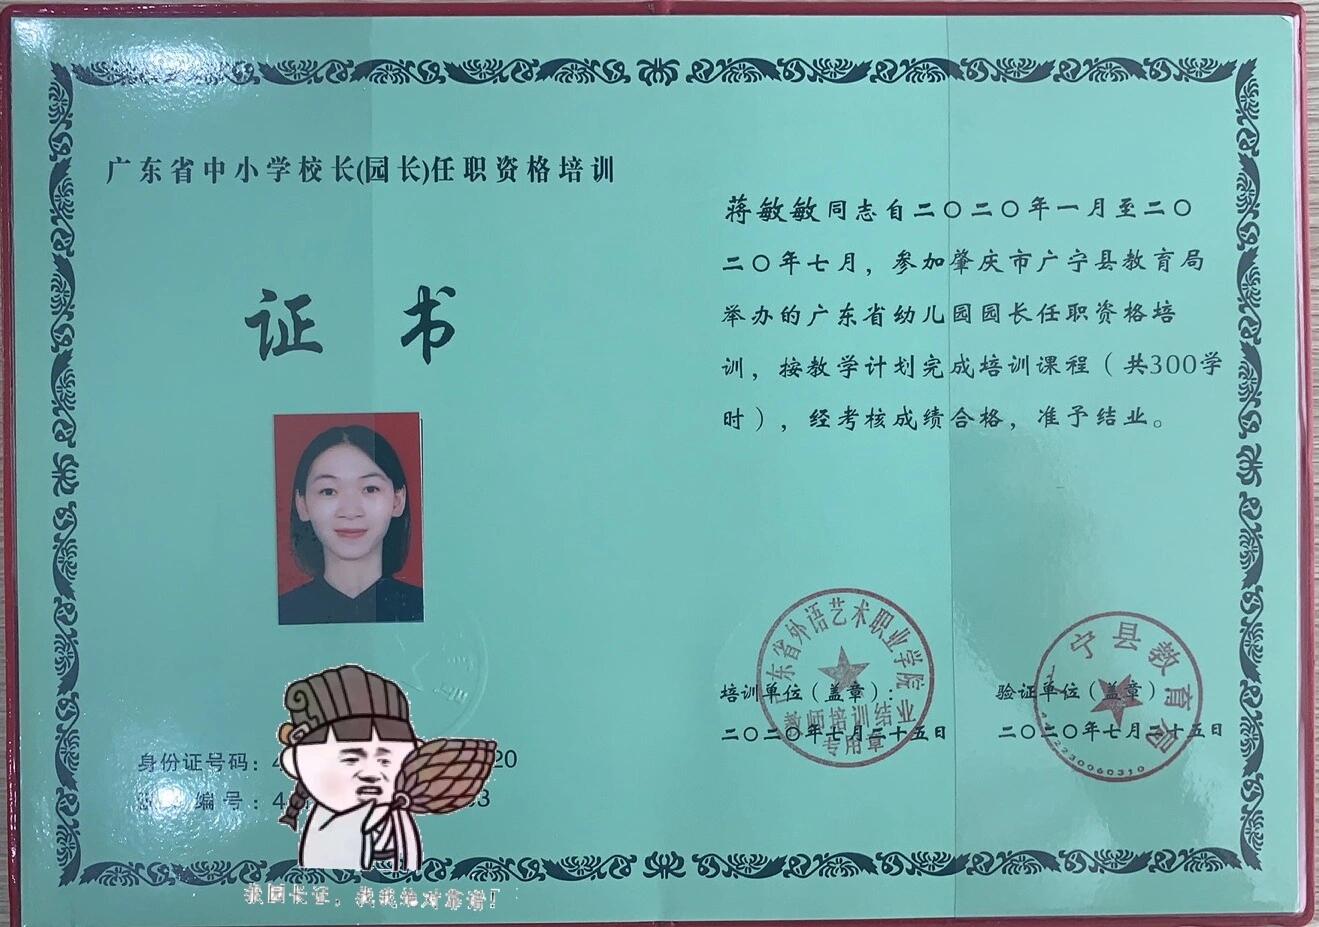 广东省中小学校长(园长)任职资格培训
证 书
身份证号码：4 20
编号：4 33
蒋敏敏同志自二〇二〇年一月至二〇
二〇年七月，参加肇庆市广宁县教育局
举办的广东省幼儿园园长任职资格培
训，按教学计划完成培训课程（共300学
时），经考核成绩合格，准予结业。
东省外语艺术职业学院
培训单位（盖章）：
教师培训结业
二〇二〇年七月二十五日
专用章
宁县教育局
验证单位（盖章）
二〇二〇年七月二十五日
2230060310
园长证，找我绝对靠谱！